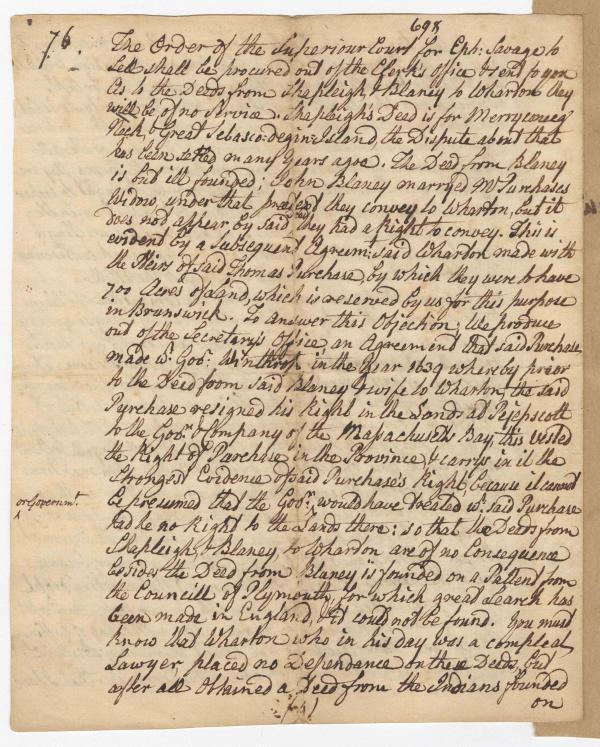 698
76.
The Order of the Superiour Court for Eph: Savage to
Sell shall be procured out of the Clerk's Office & send to you
As to the Deeds from Shapleigh & Blaney to Wharton they
will be of no Service. Shapleigh's Dead is for Merryconeig
Neck, & Great Sebasco-degin Island, the Dispute about that
has been setled many Years agoe. The Deed from Blaney
is but ill founded; John Blaney marryed Mr Purchases
Widow, under that they convey to Wharton, but it
does not appear by said Deed they had a Right to convey. This is
evident by a Subsequent Agreemt. said Wharton made with
the Heirs of said Thomas Purchase, by which they were to have
700 Acres of Land, which is reserved by us for this purpose
in Brunswick. To answer this Objection, We produce
out of the Secretarys Office, an Agreement that said Purchase
made wt. Govr. Winthrop in the Year 1639 whereby prior
to the Deed from said Blaney & wife to Wharton, the said
Purchase resigned his Right in the Lands at Pejepscott
to the Govr. & Company of the Massachusetts Bay, this vested
the Right of Purchase in the Province & carrys in it the
Strongest Evidence of said Purchase's Right, because it cannot
be presumed that the Govr. ‸ would have treated wt. said Purchase
or Governmt.
‸
had he no Right to the Lands there: so that the Deeds from
Shapleigh, & Blaney, to Wharton are of no Consequence
besides the Dead from Blaney is founded on a Pattent from
the Councill of Plymouth, for which great Search has
been made in England, & it could not be found. You must
know that Wharton who in his day was a compleat
Lawyer placed no Dependance on these Deeds, but
after all Obtained a Deed from the Indians founded
on